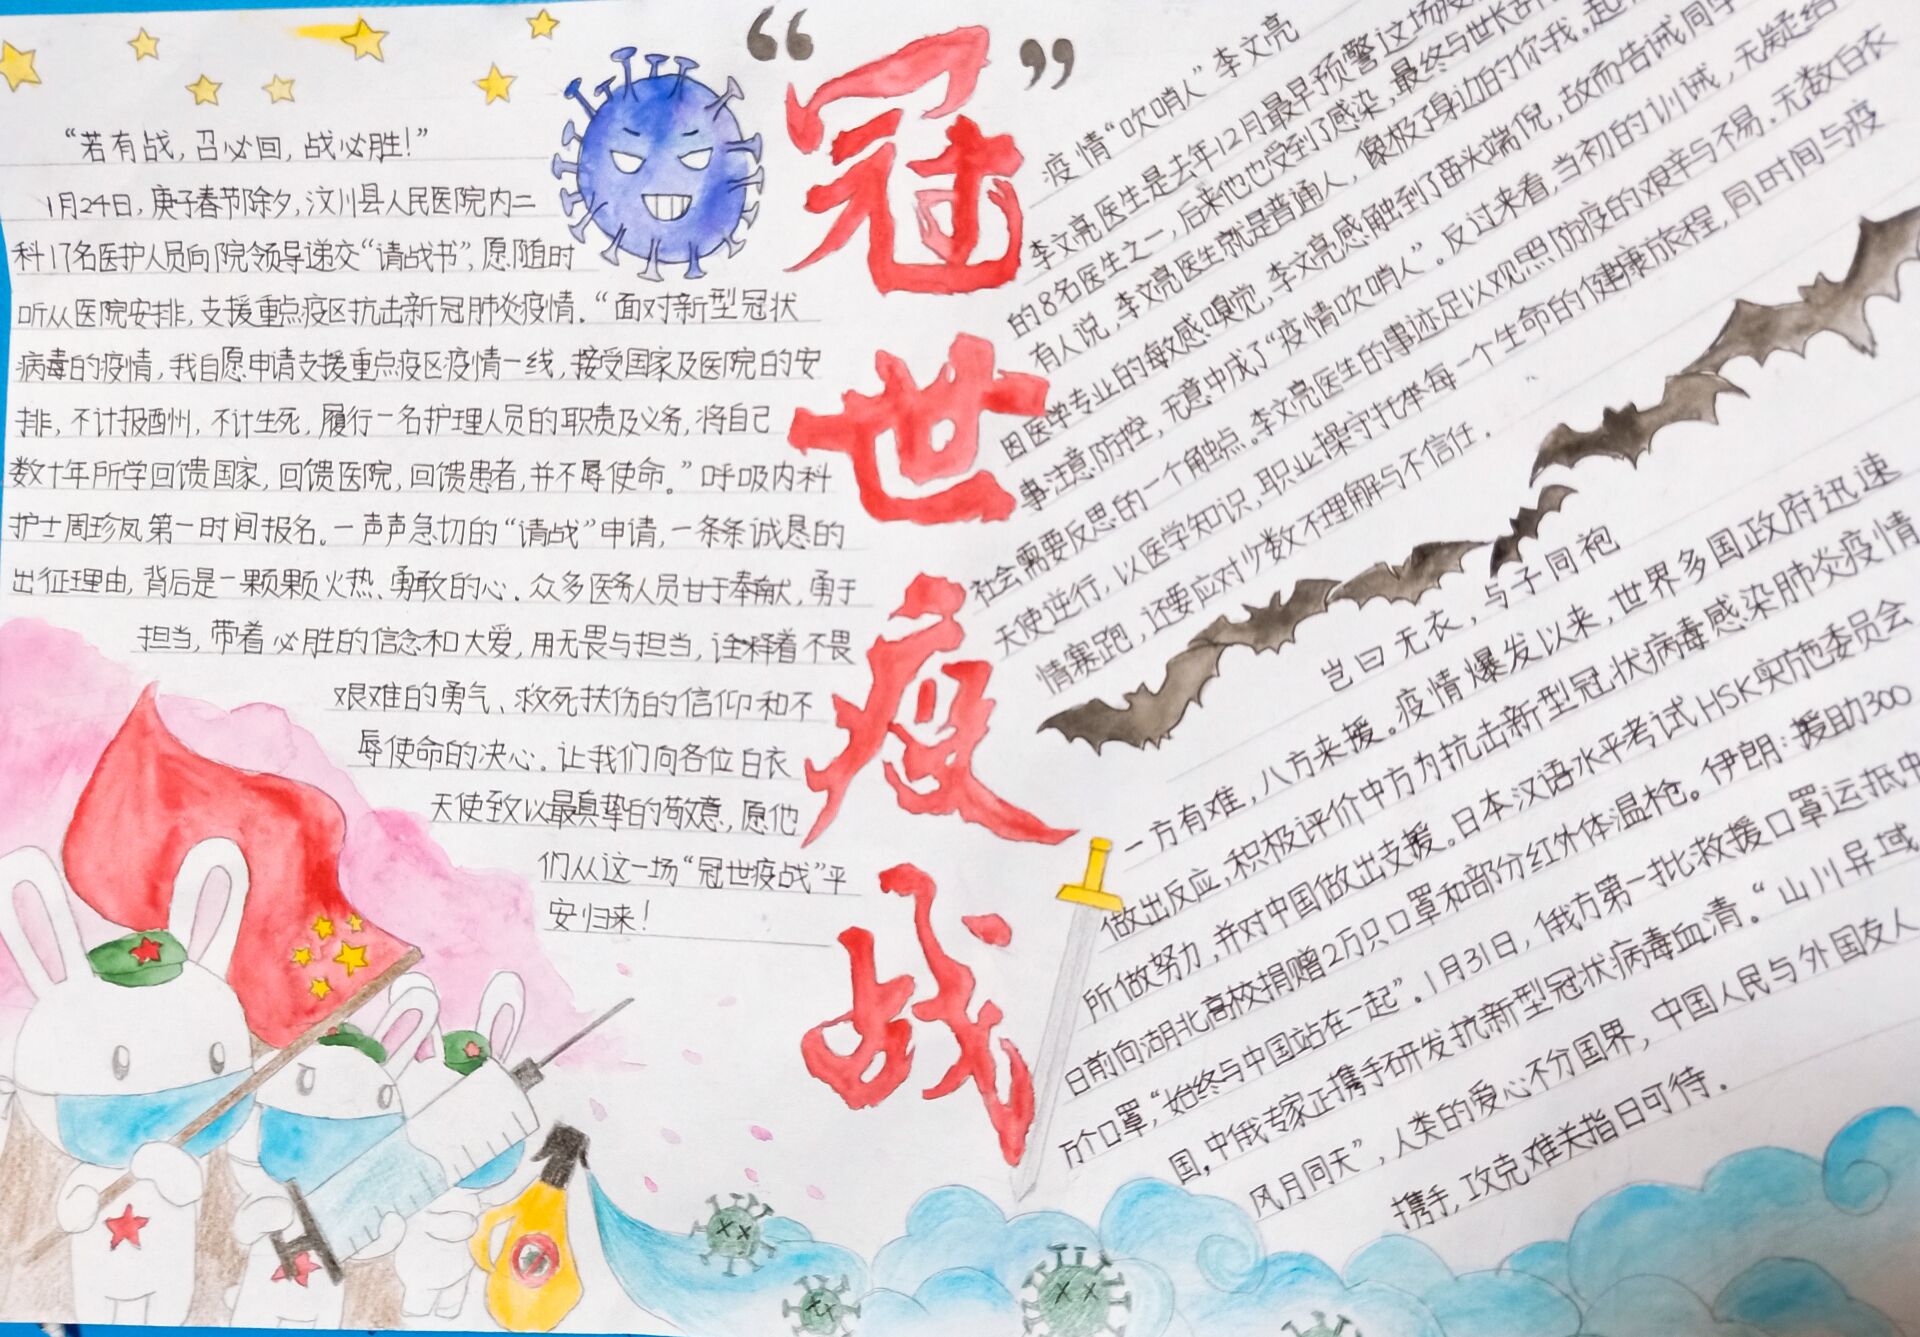 “冠世疫战”
“若有战,召必回,战必胜!”
1月24日,庚子春节除夕,汶川县人民医院内二
科17名医护人员向院领导递交“请战书”,愿随时
听从医院安排,支援重点疫区抗击新冠肺炎疫情.“面对新型冠状
病毒的疫情,我自愿申请支援重点疫区疫情一线,接受国家及医院的安
排,不计报酬州,不计生死,履行一名护理人员的职责及义务,将自己
数十年所学回馈国家,回馈医院,回馈患者,并不辱使命。”呼吸内科
护士周珍凤第一时间报名。一声声急切的“请战”申请,一条条诚恳的
出征理由,背后是一颗颗火热、勇敢的心.众多医务人员甘于奉献,勇于
担当,带着必胜的信念和大爱,用无畏与担当,诠释着不畏
艰难的勇气、救死扶伤的信仰和不
辱使命的决心.让我们向各位白衣
天使致以最真挚的敬意,愿他
们从这一场“冠世疫战”平
安归来!
疫情“吹哨人”李文亮
李文亮医生是去年12月最早预警这场疫
的8名医生之一,后来他也受到了感染,最终与世长辞
有人说,李文亮医生就是普通人,像极了身边的你我.
因医学专业的敏感嗅觉,李文亮感触到了苗头端倪,故而告诫同学
事注意防控,无意中成了“疫情吹哨人”.反过来看,当初的训诫,无疑给
社会需要反思的一个触点.李文亮医生的事迹足以观照防疫的艰辛与不易.无数白衣
天使逆行,以医学知识,职业操守托举每一个生命的健康旅程,同时间与疫
情赛跑,还要应对少数不理解与不信任.
岂曰无衣,与子同袍
一方有难,八方来援。疫情爆发以来,世界多国政府迅速
做出反应,积极评价中方为抗击新型冠状病毒感染肺炎疫情
所做努力,并对中国做出支援。日本汉语水平考试HSK实施委员会
日前向湖北高校捐赠2万只口罩和部分红外体温枪。伊朗:援助300
万个口罩,“始终与中国站在一起”.1月31日,俄方第一批救援口罩运抵中
国,中俄专家正携手研发抗新型冠状病毒血清.“山川异域
风月同天”,人类的爱心不分国界,中国人民与外国友人
携手,攻克难关指日可待.